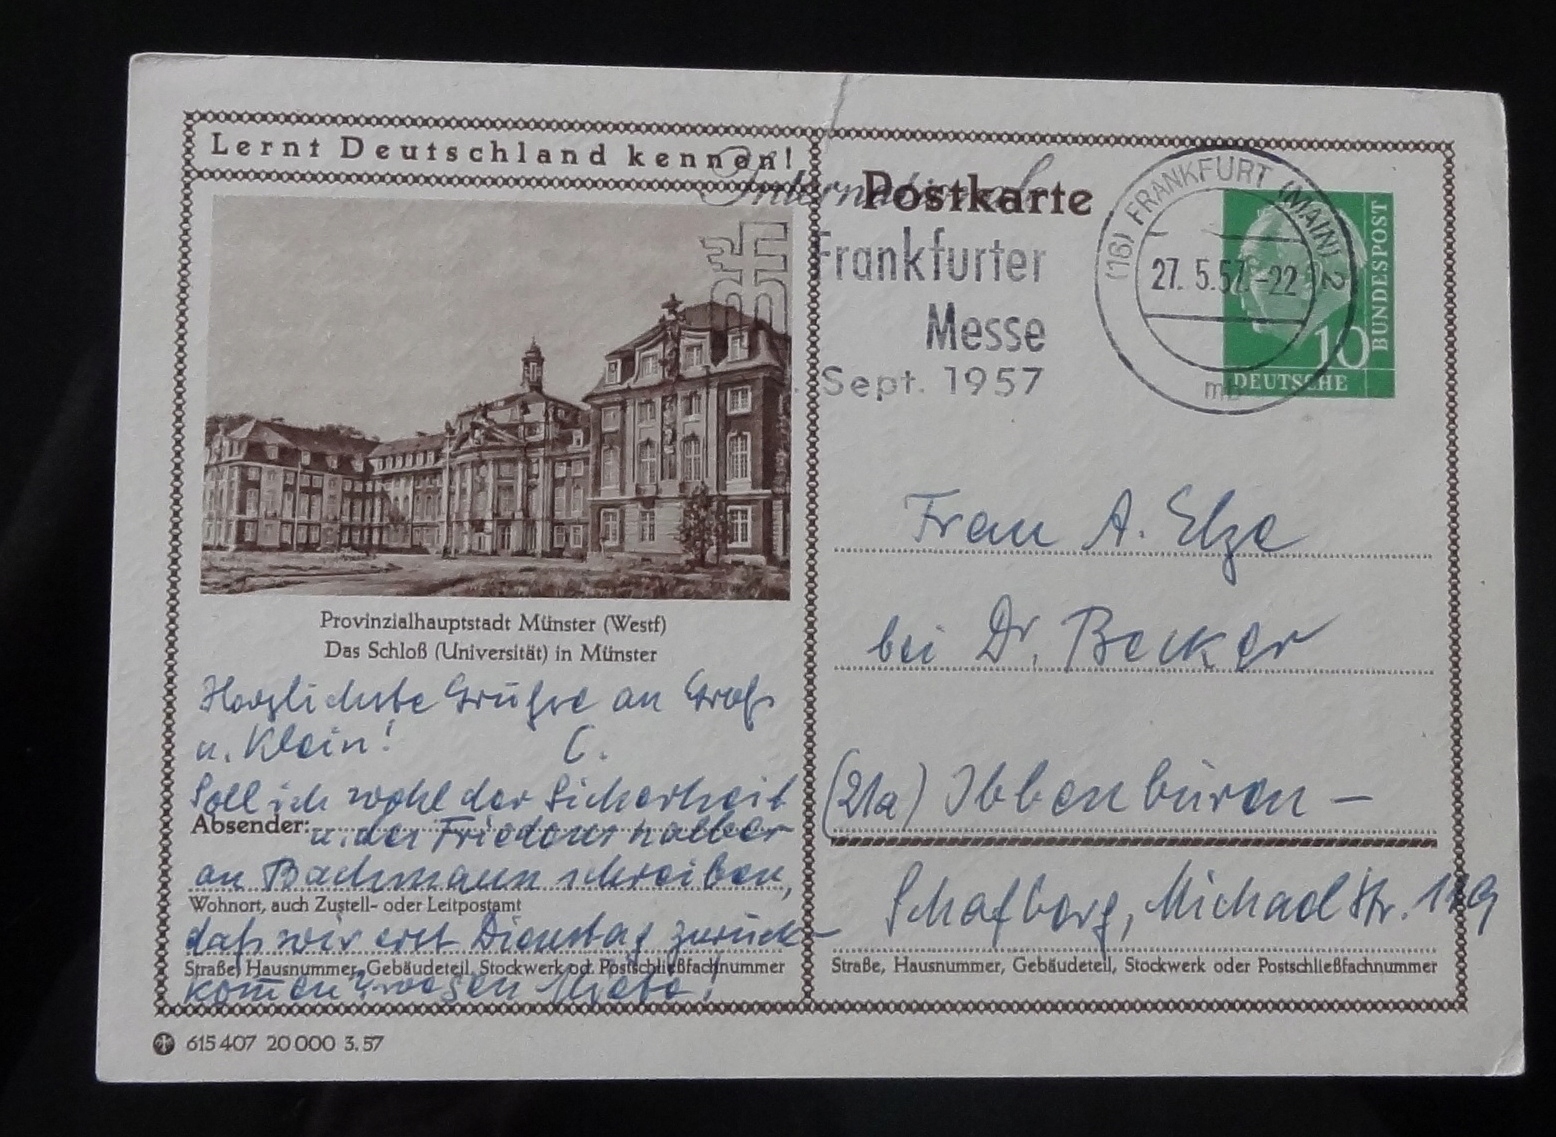 Lernt Deutschland kennen!
Provinzialhauptstadt Münster (Westf)
Das Schloß (Universität) in Münster
Herzlichste Grüße an Groß
u. Klein! C.
Soll ich wohl der Sicherheit
Absender: u. des Friedens halber
an Bachmann schreiben,
Wohnort, auch Zustell- oder Leitpostamt
daß wir erst Dienstag zurück-
Straße, Hausnummer, Gebäudeteil, Stockwerk od. Postschließfachnummer
kommen? wegen Miete!
615 407 20 000 3.57
Postkarte
Internationale
Frankfurter
Messe
. Sept. 1957
(16) FRANKFURT (MAIN) 2
27. 5.57.-22
10
DEUTSCHE
BUNDESPOST
Frau A. Elze
bei Dr. Becker
(21a) Ibbenbüren -
Schafberg, Michael Str.
Straße, Hausnummer, Gebäudeteil, Stockwerk oder Postschließfachnummer